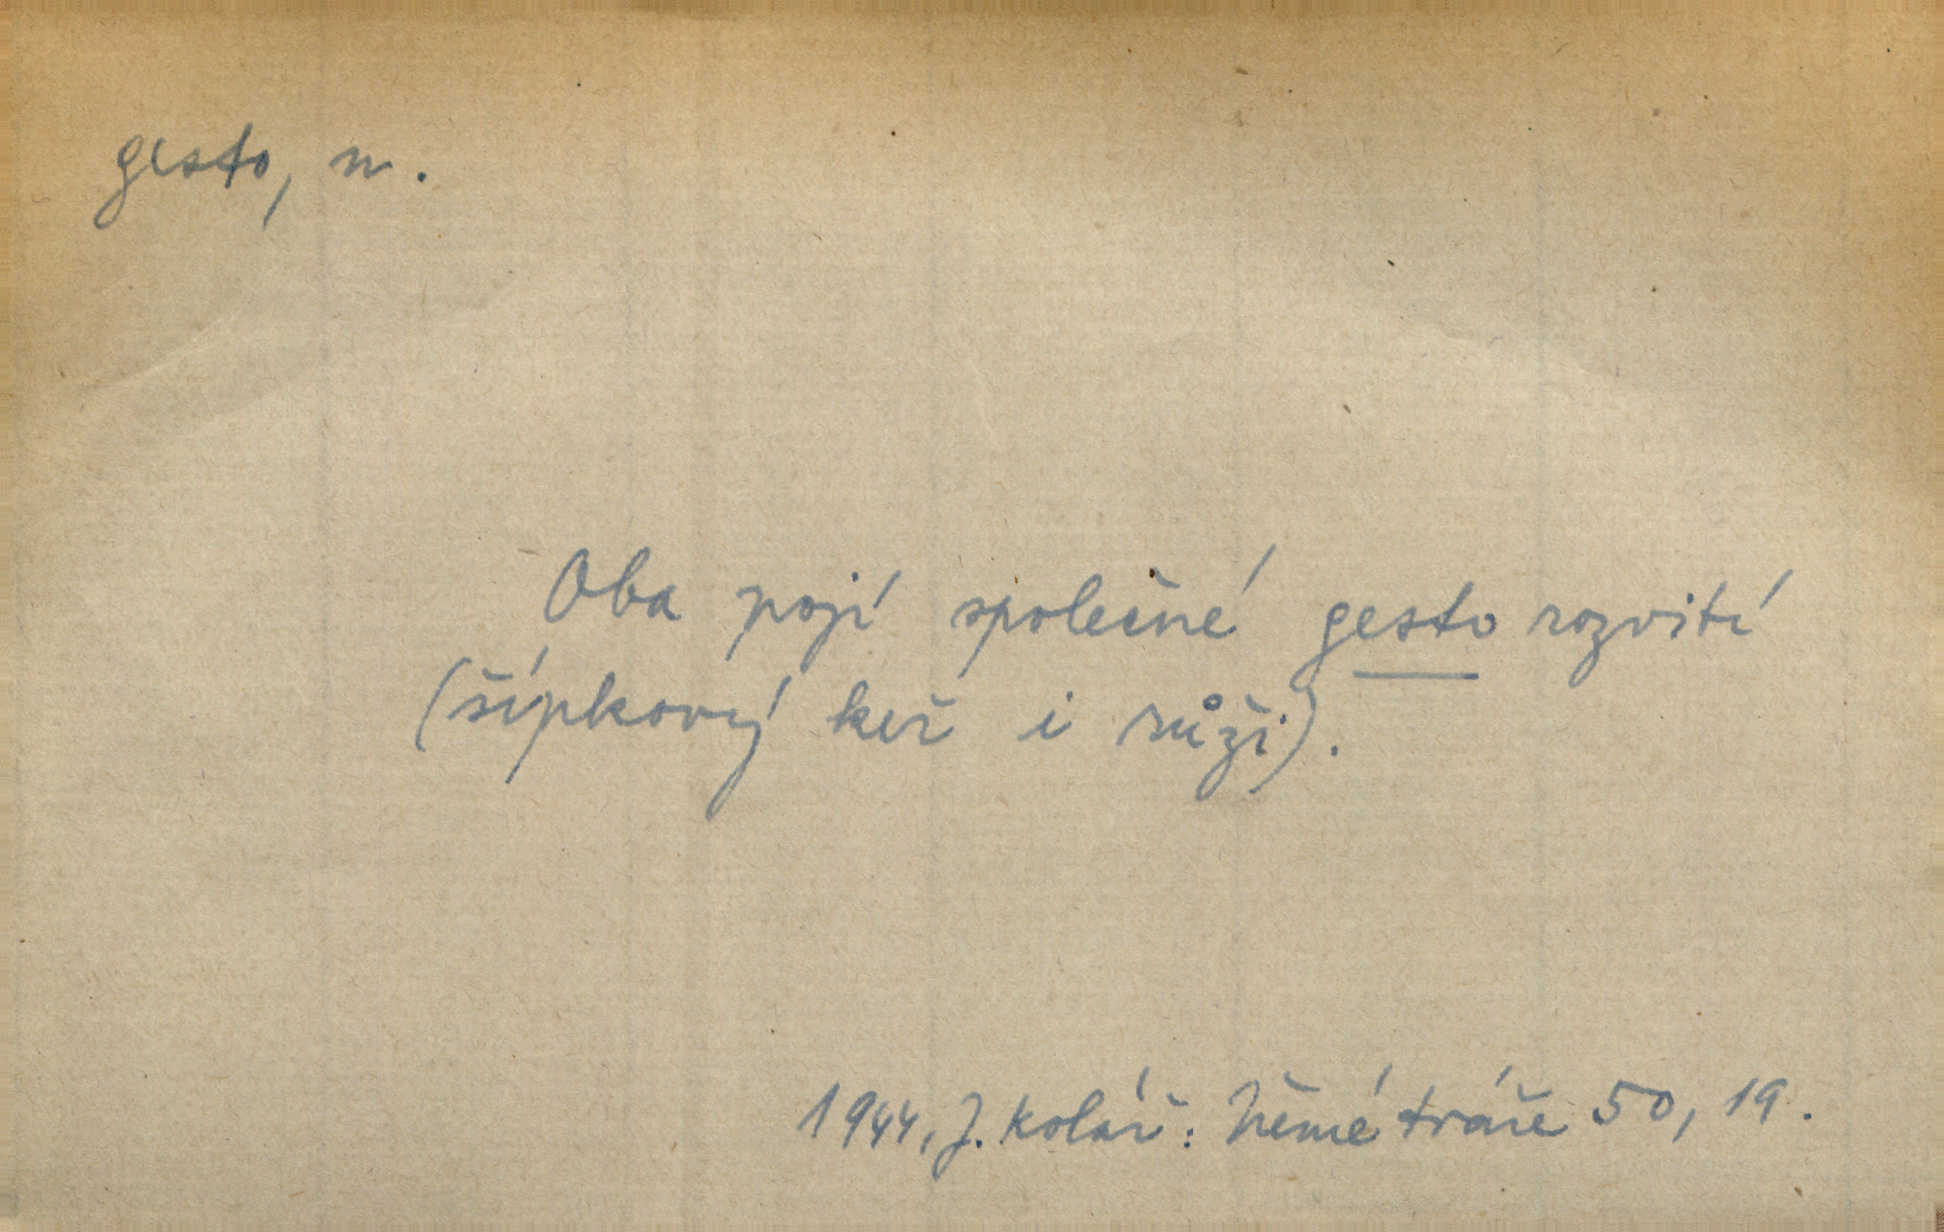 gesto, n.
Oba pojí společné gesto rozvití
(šípkový keř i růži).
1944, J. Kolář: Němé tváře 50, 19.